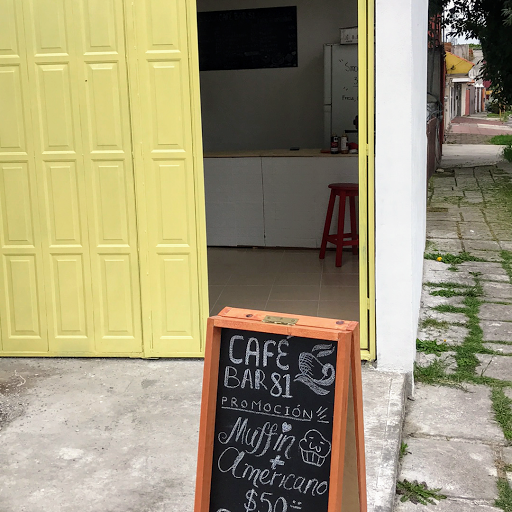 CAFÉ
BAR 81
PROMOCIÓN
Muffin
+
Americano
$50